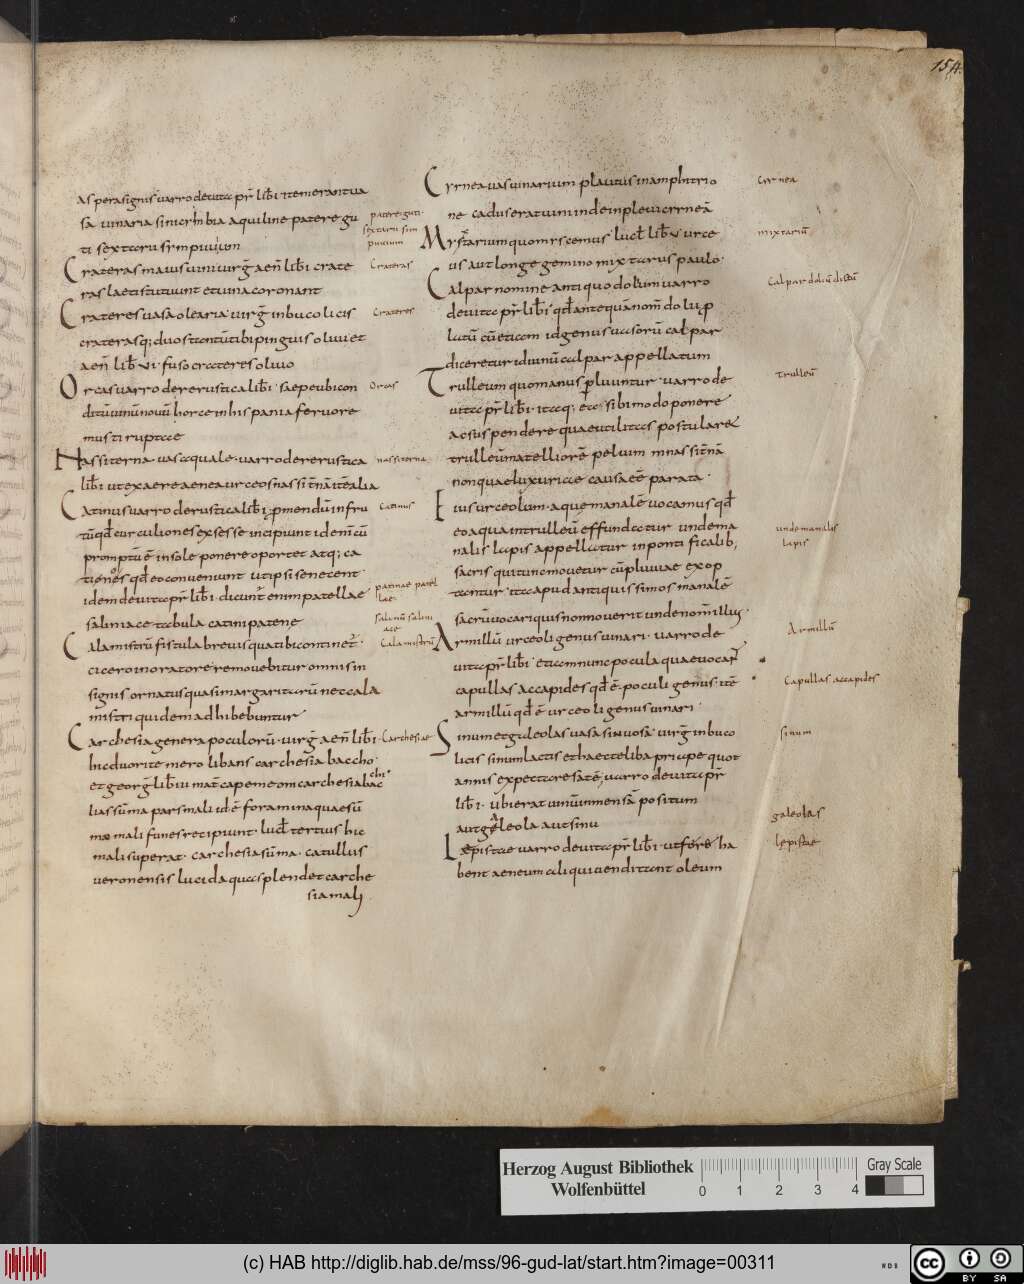 154
asperasignis varro devitapr̄ lib̄i itemerantva
sā vinaria sini cẏmbia aquiline patere gu
ti sextarii sẏmpiuuion
Crateras maius vini virḡ aen̄ lib̄i crate
ras laetistatuunt et vina coronant
Crateres vasa olearia virḡ in bucolicis
craterasq; duo statuā tibi pinguis olivi et
aen̄ lib̄ vi fuso crateres olivo
Orcas varro dererustica lib̄i saepeubicon
ditū vinū novū horce in hispania fervore
musti ruptae
Nassiterna vas aquale varro dererustica
lib̄i ut ex aere aenea urceos nassitn̄a itē alia
Catinus varro derustica lib̄i
tū qd̄ curculiones exesse incipiunt idem cū
promptū ē in sole ponere oportet atq; ca
qd̄ eo conveniunt ut ipsi se necent
idem devitapr̄ lib̄i dicunt̄ enim patellae
salinace tabula catini patene
Calamistrū fistula brevis quatibi continet̄
cicero in oratore removebitur omnis in
signis ornatus quasi margaritarū nec cala
mistri quidem adhibebuntur
Carchesia genera poculorū virḡ aen̄ lib̄i
hic duo rite mero libans carchesia baccho
et georḡ lib̄ iiii mat̄ cape meoni carchesia bacchi
lias sūma pars mali id ē foramina quae sū
mo mali funes recipiunt lucl̄ tertius hic
mali superat carchesia sūma catullus
veronensis lucida qua splendet carche
sia mali
patere guti
sextarii sim
puuium
Crateras
Crateres
Orcas
nassiterna
Catinus
patinae patel
lae
salinū salini
ace
Calamistrū
Carchesiae
Cyrnea vas vinarium plautus in amphitrio
ne cadus erat vini inde inplevi cirneā
Mystarium quo miscemus lucl̄ lib̄ v urce
us aut longe gemino mixtarus paulo
Calpar nomine antiquo dolium varro
devita pr̄ lib̄i qd̄ antequā nom̄ dolu
latū cū etiam id genus vasorū calpar
diceretur id vinū calpar appellatum
Trulleum quo manus pluuntur varro de
vita pr̄ lib̄i itaq; ea sibi modo ponere
ac suspendere quae utilitas postulare
trulleū matelliorē pelvim nnassitn̄ā
non quae luxuriae causa eē parata
Eius urceolum aquę manalē vocamus qd̄
eo aqua in trulleū effundatur unde ma
nalis lapis appellatur in pontificalib;
sacris qui tunc movetur cū pluviae exop
tantur ita apud antiquissimos manalē
sacrū vocari quis non noverit unde nom̄ illus
Armillū urceoli genus vinari varro de
vita pr̄ lib̄i etiam nunc pocula quae vocant̄
capullas accapides qd̄ ē poculi genus itē
armillū qd̄ ē urceoli genus vinari
Sinum et galeolas vasa sinuosa virḡ in buco
licis sinum lactis et haec te liba priape quot
annis expectare sat ē varro devita pr̄
lib̄i ubi erat vinū in mensā positum
aut galeola aut sinu
Lepistae varro devita pr̄ lib̄i ut fere ha
bent aeneum aliqui venditant oleum
Cyrnea
mixtariū
Calpar doliū dictū
trulleū
unde manalis
lapis
Armillū
Capullas accapides
sinum
galeolas
lepistae
Herzog August Bibliothek
Wolfenbüttel
0 1 2 3 4
Gray Scale
(c) HAB http://diglib.hab.de/mss/96-gud-lat/start.htm?image=00311
WDB
cc BY SA